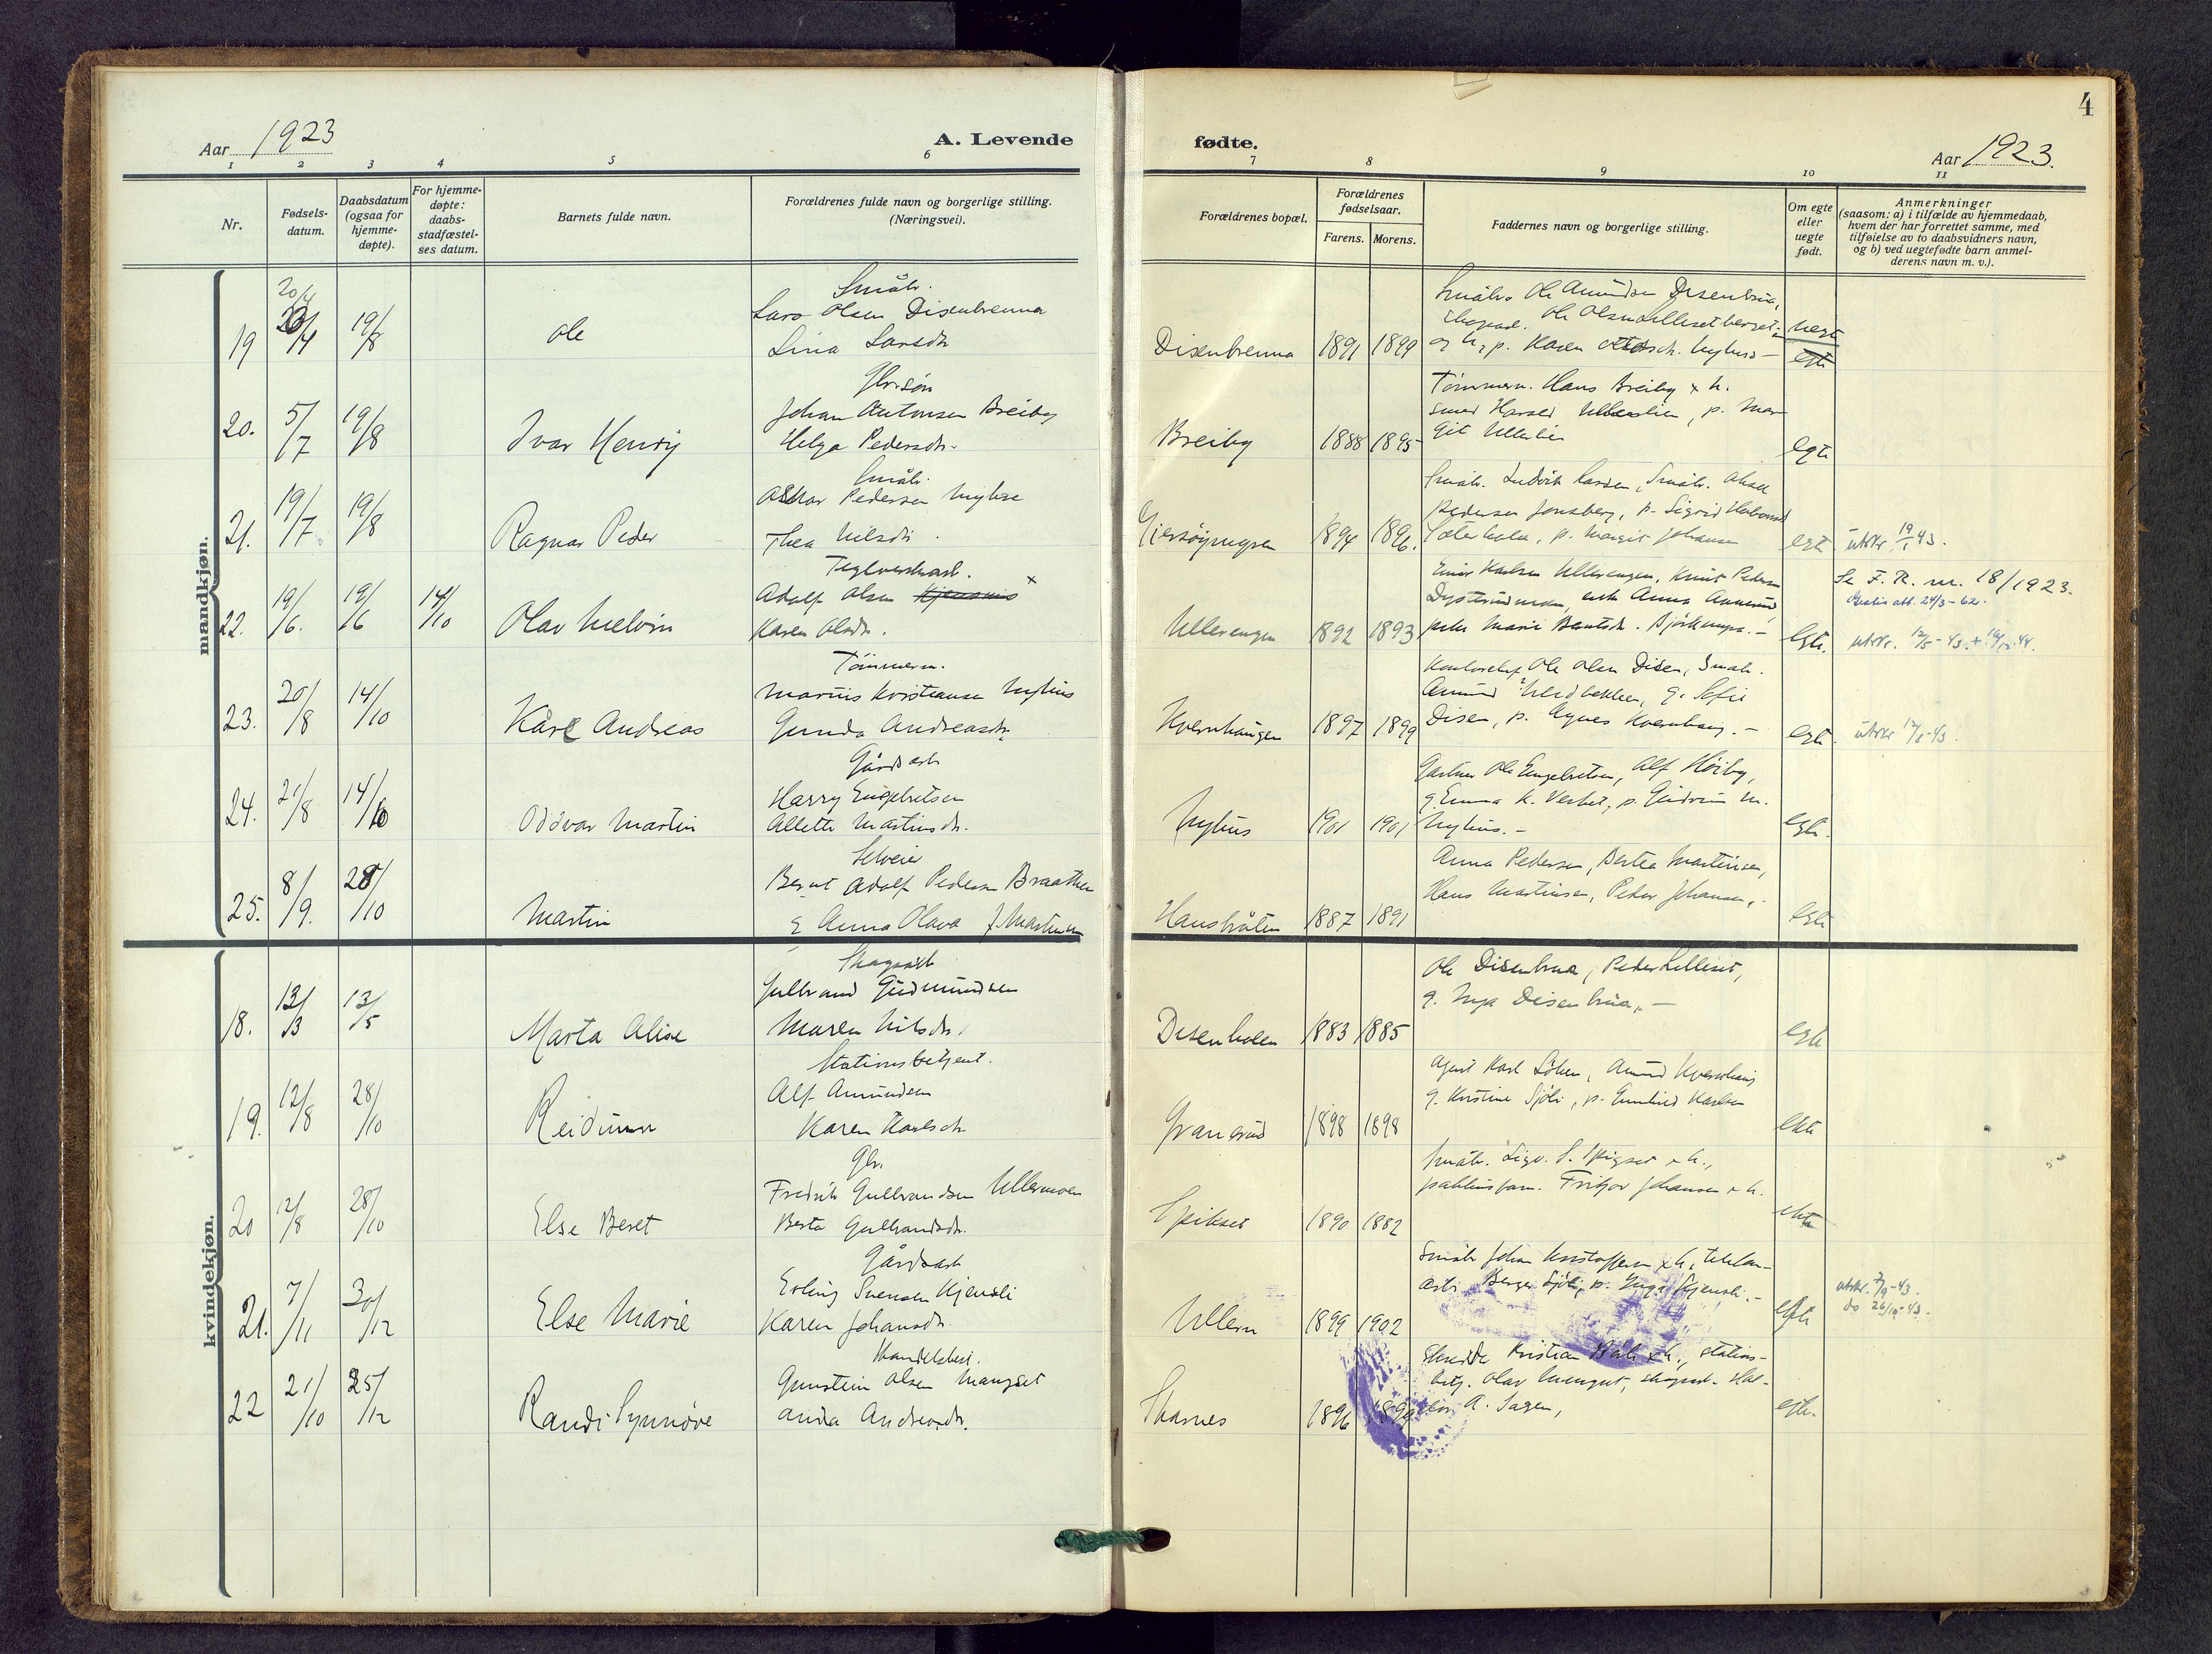 4
Aar 1923
A. Levende
fødte.
Aar 1923.
1 2 3 4 5 6 7 8 9 10 11
Nr.
Fødsels-
datum.
Daabsdatum
(ogsaa for
hjemme-
døpte).
For hjemme-
døpte:
daabs-
stadfæstel-
ses datum.
Barnets fulde navn.
Forældrenes fulde navn og borgerlige stilling.
(Næringsvei).
Forældrenes bopæl.
Forældrenes
fødselsaar.
Farens. Morens.
Faddernes navn og borgerlige stilling.
Om egte
eller
uegte
født.
Anmerkninger
(saasom: a) i tilfælde av hjemmedaab,
hvem der har forrettet samme, med
tilføielse av to daabsvidners navn,
og b) ved uegtefødte barn anmel-
derens navn m. v.).
mandkjøn.
20/4
19 19/8 Ole
Småbr.
Lars Olsen Disenbrenna
Lina Larsdtr
Disenbrenna 1891 1899
Småbr. Ole Amundsen Disenbrua,
Ole Olsen Lillesetberget
og h, p. Karen Nyhus
uegte
egte
20. 5/7 19/8 Ivar Henry
Gbr.søn
Johan Antonsen Breiby
Helga Pedersdtr.
Breiby 1888 1895
Tømmerm. Hans Breiby & h.
smed Harald Ullerlien, p. Mar
git Ullerlien
egte
21. 19/7 19/8 Ragnar Peder
Småbr.
Oskar Pedersen Nyhus
Thea Nilsdtr.
1894 1896.
Småbr. Ludvik Larsen, Småbr.
Pedersen Jonsberg, p. Sigrid
p. Margit Johansen
egte utskr 19/1 43.
22. 19/6. 19/6 14/10 Olav Melvin
Teglverksarb.
Adolf Olsen Kjensmo x
Karen Olsdtr.
Ullerengen 1892 1893
Einar Karlsen Ullerengen, Knut Pedersen
enke Anna
Marie Berntsdtr.
egte.
Se F. R. nr. 18/1923.
Gratis att. 24/3-62.
utskr. 12/5-43.
23. 20/8 14/10 Kåre Andreas
Tømmerm.
Marius Kristiansen Nyhus
Gunda Andreasdtr.
Kvernhaugen 1897 1899
Ole Olsen Disen, Småbr.
Amund g. Sofie
Disen, p. Agnes Kvernhaug.-
egte. utskr 12/8-43.
24. 21/8 14/10 Oddvar Martin
Gårdsarb
Harry Engebretsen
Allette Martinsdtr.
Nyhus 1901 1901
Gartner Ole Engebretsen, Alf Høiby,
g. Emma K. p. Gudrun M.
Nyhus.-
egte.
25. 8/9. 28/10 Martin
Selveier
Bernt Adolf Pedersen Braathen
& Anna Olava f. Martinsen
Hansbråten 1887 1891
Anna Pedersen, Bertea Martinsen,
Hans Martinsen, Peder Johansen.
egte
kvindekjøn.
18. 13/3 13/5 Marta Alise
Skogsarb
Gulbrand Gudmundsen
Maren Nilsdtr.
Disenholen 1883 1885
Ole Disenbrua, Peder Lilleset,
g. Inga Disenbrua,-
egte
19. 12/8 28/10 Reidunn
Stationsbetjent.
Alf Amundsen
Karen Karlsdtr
Granerud 1898 1898
Agent Karl Løken, Amund Kvernhaug
g. Kristine Sjøli, p. Gunhild Karlsen
ekte
20 12/8 28/10 Else Beret
Gbr.
Fredrik Gulbrandsen Ullermoen
Berta Gulbrandsdtr.
Spikset 1890 1882
Småbr. Sigv. S. Spigset & h.,
Fritjov Johansen & h.
ekte
21. 7/11 30/12 Else Marie
Gårdsarb
Erling Svensen Kjensli
Karen Johansdtr.
Ullern 1899 1902
Småbr Johan Kristoffersen & h, telefon-
arb. Berger Sjøli, p. Inga Kjensli.-
egte
utskr. 7/9-43.
do 26/10-43.
22 21/10 25/12 Randi Synnøve
Handelsbest.
Gunstein Olsen Mangset
Anda Andreasdtr.
Skarnes 1896 1899
Kristian & h., stations-
betj. Olav
A. Sagen,
egte.